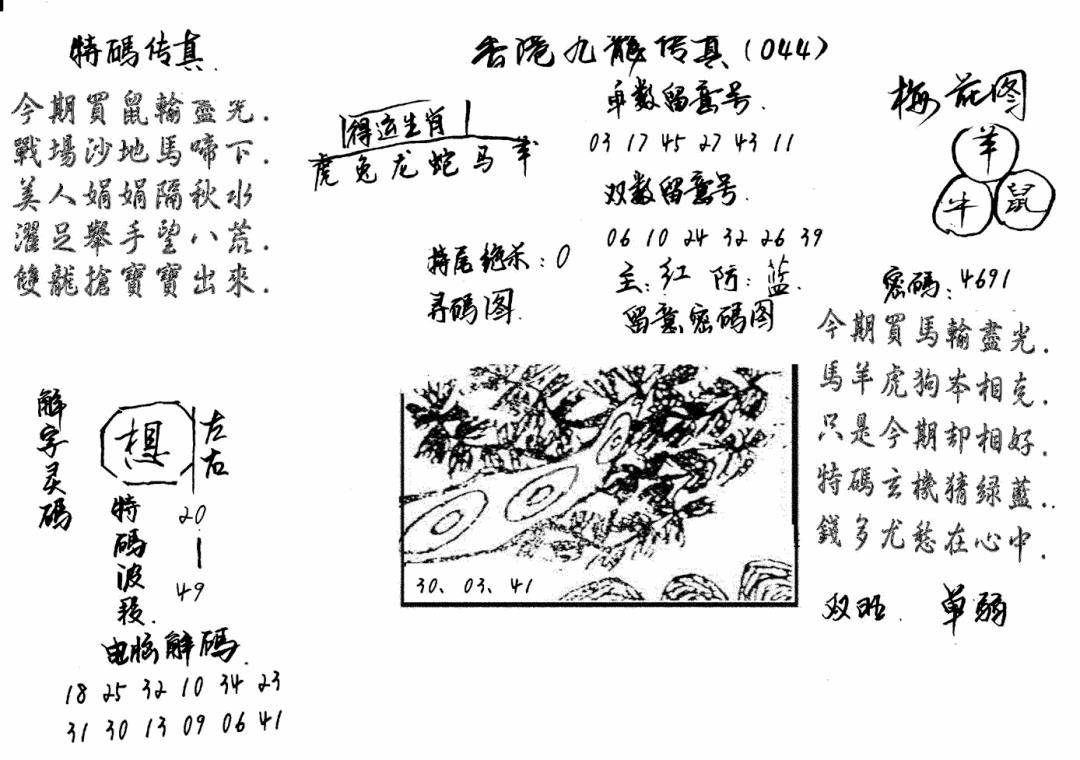 特碼传真.
今期買鼠輸盡光.
戰場沙地馬啼下.
美人娟娟隔秋水
濯足舉手望八荒.
雙龍搶寶寶出來.
香港九龍传真(044)
得运生肖
虎兔龙蛇马羊
单数留意号.
03 17 45 27 43 11
双数留意号.
06 10 24 32 26 39
特尾绝杀:0
主:红 防:蓝.
寻码图.
留意密码图
30、03、41
梅花图
羊
牛 鼠
密碼:4691
今期買馬輸盡光.
馬羊虎狗本相克.
只是今期却相好.
特碼玄機猜绿藍..
錢多尤愁在心中.
双旺. 单弱
解字灵碼
想
左右
特碼波段.
20
49
电脑解碼.
18 25 32 10 34 23
31 30 13 09 06 41